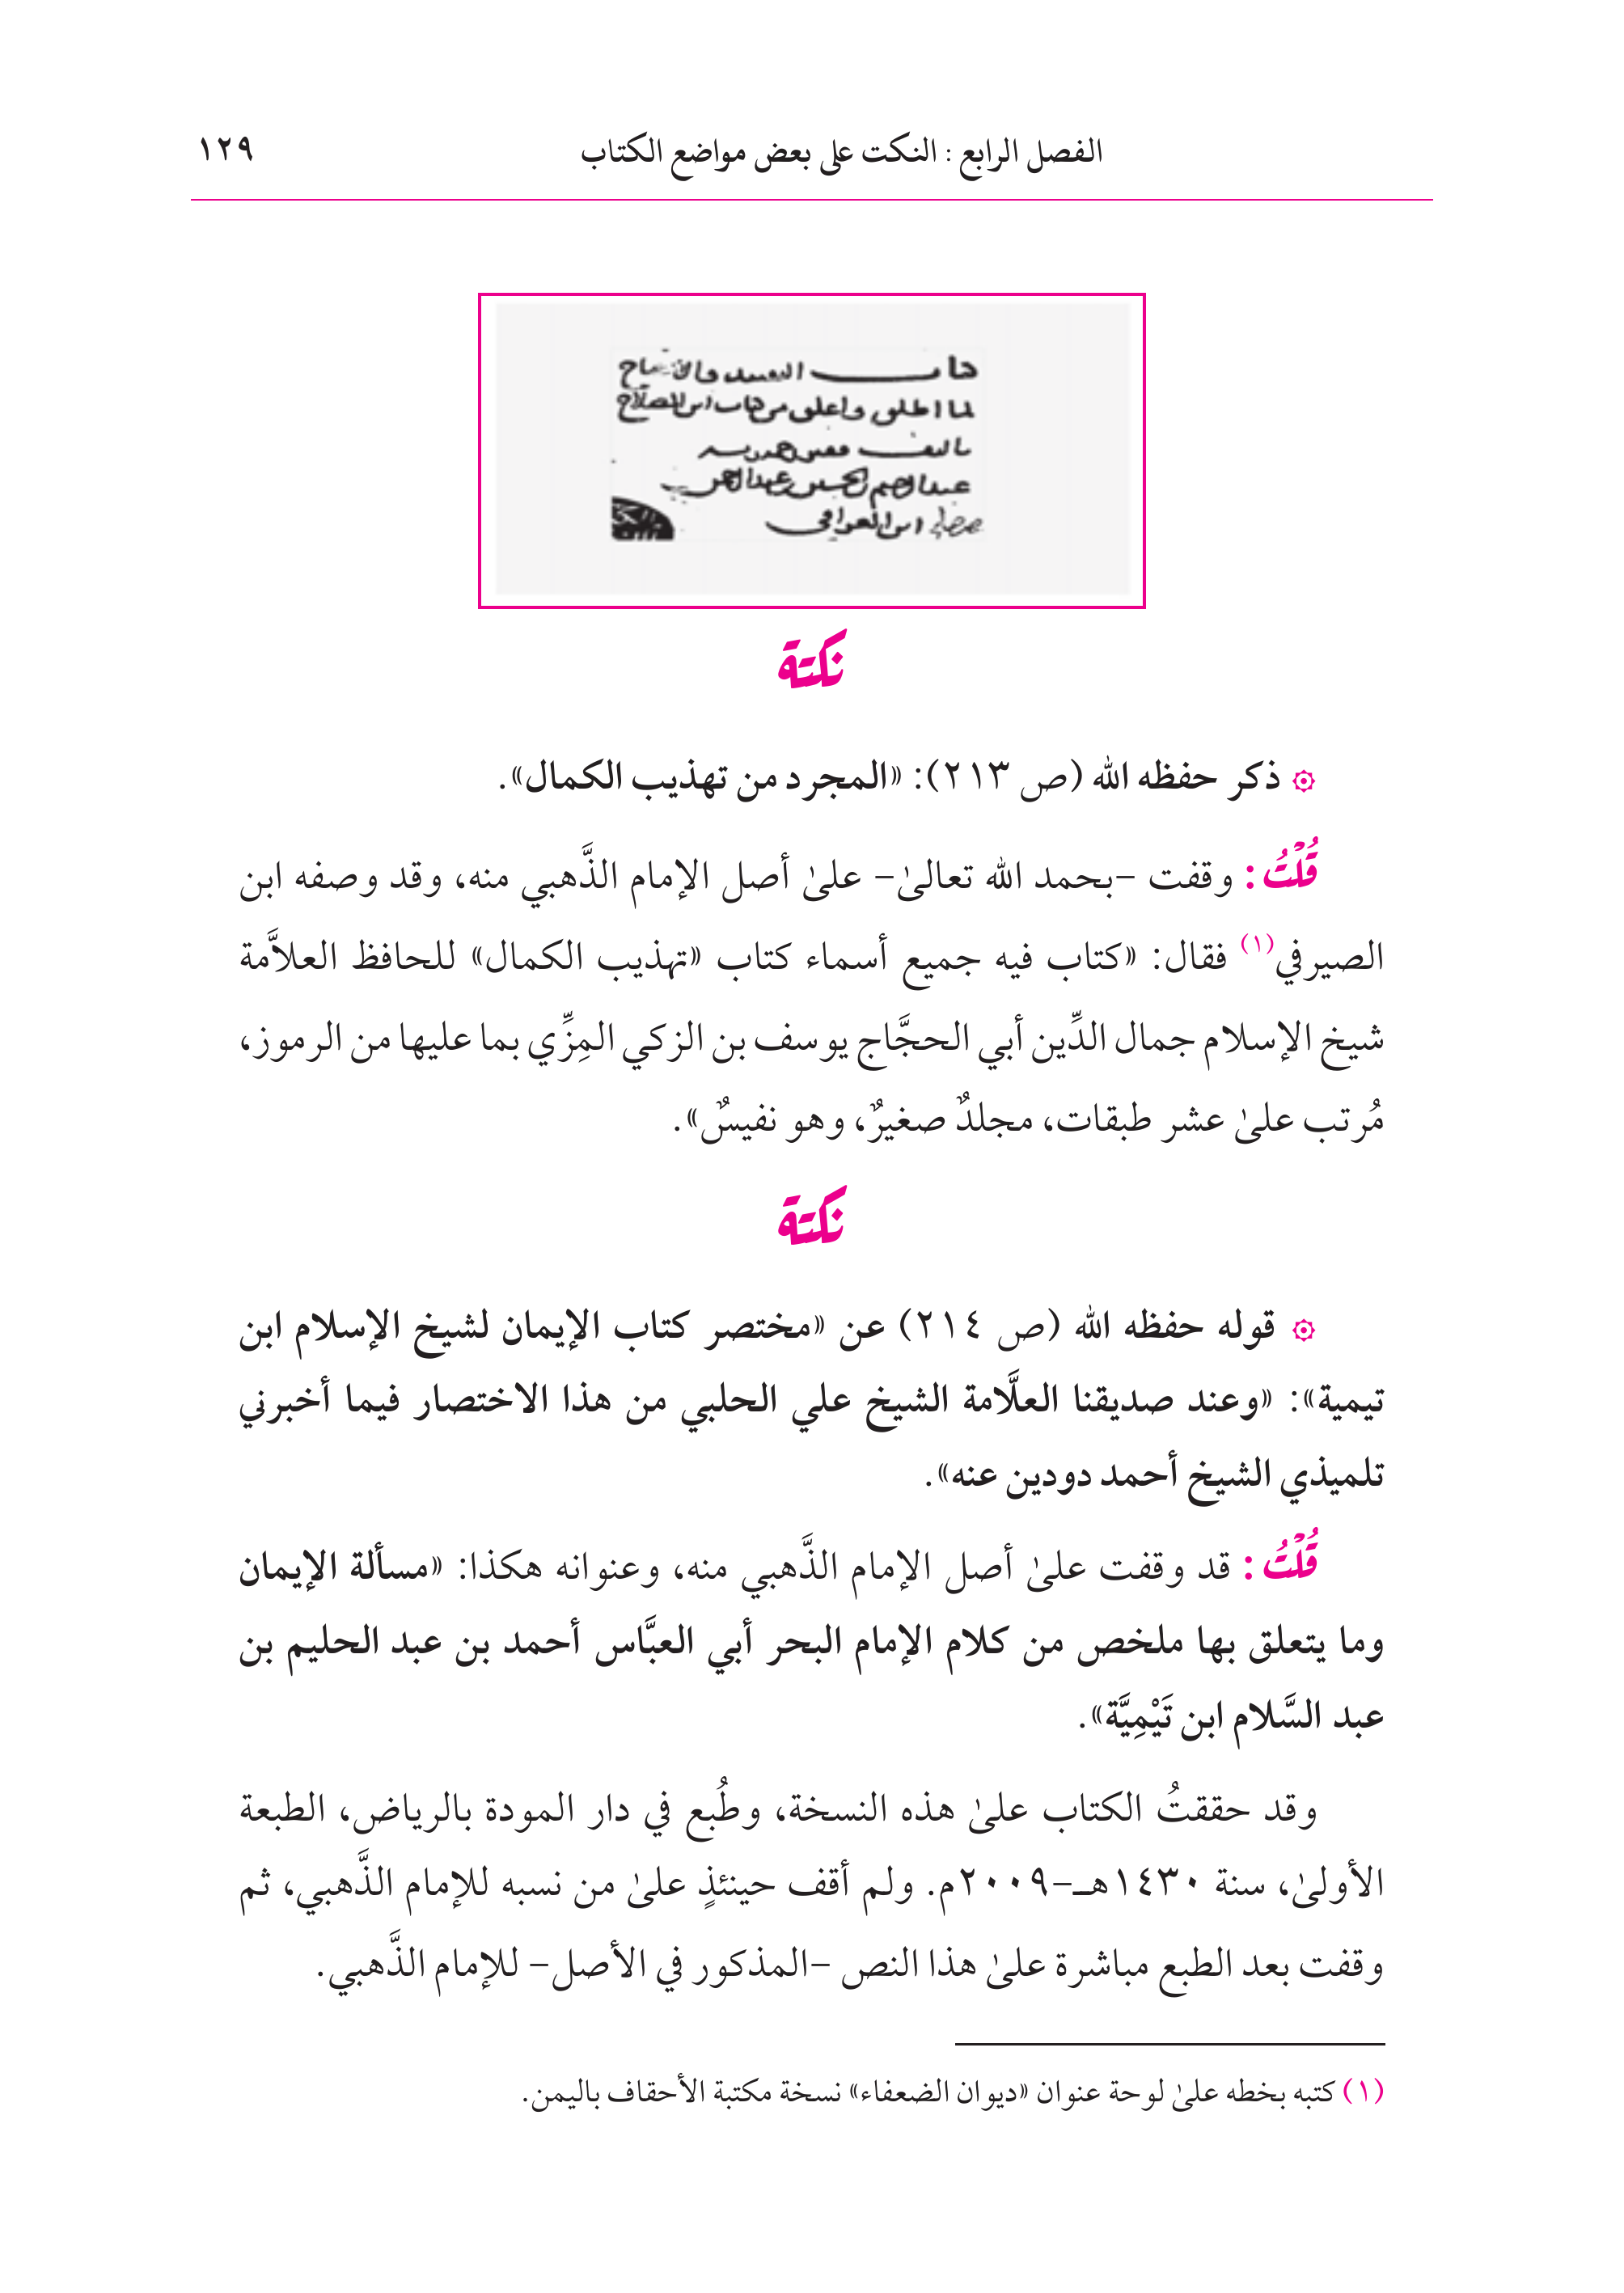 الفصل الرابع : النكت على بعض مواضع الكتاب ١٢٩
كتاب التقييد والايضاح
لما اطلق واغلق من كتاب ابن الصلاح
تاليف
عبد الرحيم بن الحسين بن عبد الرحمن
ابن العراقي
نكتة
ذكر حفظه الله (ص ٢١٣): «المجرد من تهذيب الكمال».
قُلْتُ: وقفت -بحمد الله تعالىٰ- علىٰ أصل الإمام الذَّهبي منه، وقد وصفه ابن
الصيرفي(١) فقال: «كتاب فيه جميع أسماء كتاب «تهذيب الكمال» للحافظ العلاَّمة
شيخ الإسلام جمال الدِّين أبي الحجَّاج يوسف بن الزكي المِزِّي بما عليها من الرموز،
مُرتب علىٰ عشر طبقات، مجلدٌ صغيرٌ، وهو نفيسٌ».
نكتة
قوله حفظه الله (ص ٢١٤) عن «مختصر كتاب الإيمان لشيخ الإسلام ابن
تيمية»: «وعند صديقنا العلَّامة الشيخ علي الحلبي من هذا الاختصار فيما أخبرني
تلميذي الشيخ أحمد دودين عنه».
قُلْتُ: قد وقفت علىٰ أصل الإمام الذَّهبي منه، وعنوانه هكذا: «مسألة الإيمان
وما يتعلق بها ملخص من كلام الإمام البحر أبي العبَّاس أحمد بن عبد الحليم بن
عبد السَّلام ابن تَيْمِيَّة».
وقد حققتُ الكتاب علىٰ هذه النسخة، وطُبع في دار المودة بالرياض، الطبعة
الأولىٰ، سنة ١٤٣٠هـ-٢٠٠٩م. ولم أقف حينئذٍ علىٰ من نسبه للإمام الذَّهبي، ثم
وقفت بعد الطبع مباشرة علىٰ هذا النص -المذكور في الأصل- للإمام الذَّهبي.
(١) كتبه بخطه علىٰ لوحة عنوان «ديوان الضعفاء» نسخة مكتبة الأحقاف باليمن.